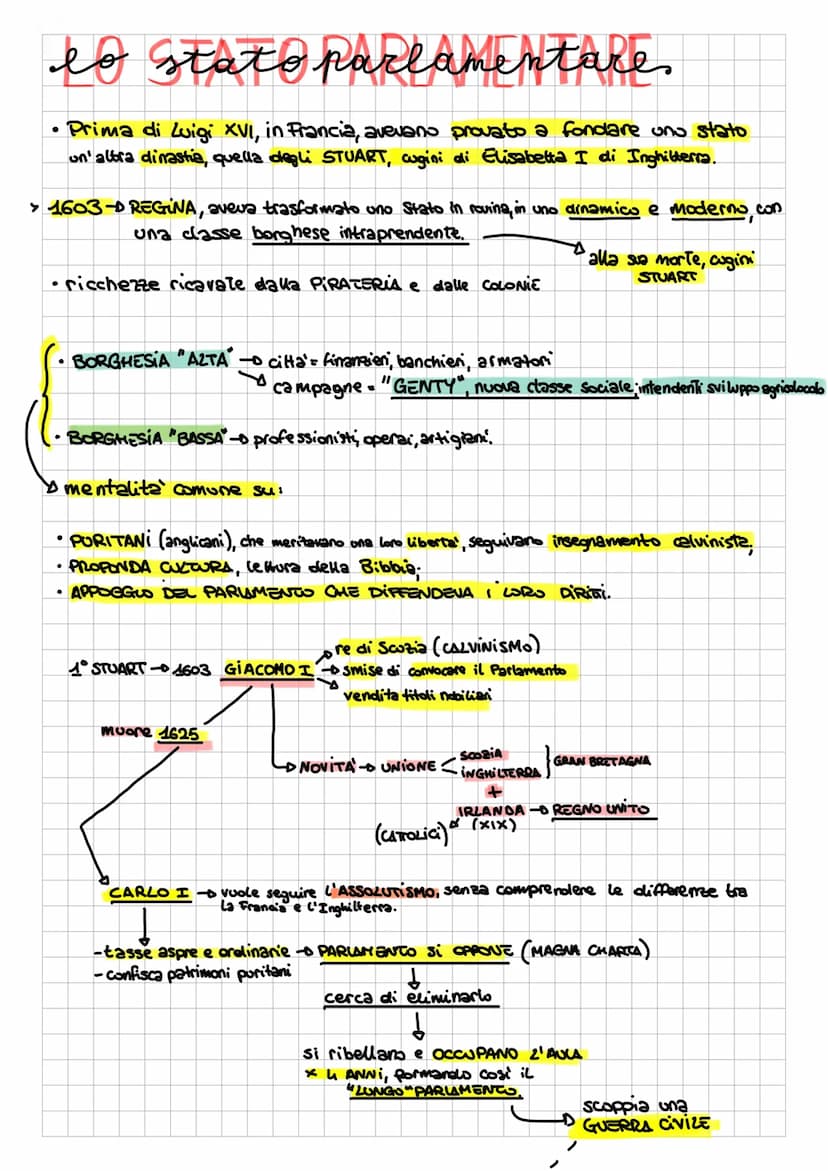 LO STATO PARLAMENTARE
lo stato parlamentare
• Prima di Luigi XVI, in Francia, avevano provato a fondare uno stato
un'altra dinastia, quella degli STUART, cugini di Elisabetta I di Inghilterra.
> 1603 → REGINA, aveva trasformato uno Stato in rovina, in uno dinamico e moderno, con
una classe borghese intraprendente.
alla sua morte, cugini
STUART
• ricchezze ricavate dalla PIRATERIA e dalle COLONIE
• BORGHESIA "ALTA" → città = finanzieri, banchieri, armatori
→ campagne = "GENTY", nuova classe sociale, intendenti sviluppo agricolo
• BORGHESIA "BASSA" → professionisti, operai, artigiani.
mentalità comune su:
• PURITANI (anglicani), che meritavano una loro libertà, seguivano insegnamento calviniste;
• PROFONDA CULTURA, lettura della Bibbia;
• APPOGGIO DEL PARLAMENTO CHE DIFFENDEVA I LORO DIRITTI.
re di Scozia (CALVINISMO)
1° STUART → 1603 GIACOMO I → smise di convocare il Parlamento
vendita titoli nobiliari
muore 1625
→ NOVITÀ → UNIONE < SCOZIA
INGHILTERRA } GRAN BRETAGNA
+
IRLANDA → REGNO UNITO
(CATTOLICI) (XIX)
CARLO I → vuole seguire l'ASSOLUTISMO, senza comprendere le differenze tra
la Francia e l'Inghilterra.
- tasse aspre e ordinarie → PARLAMENTO SI OPPONE (MAGNA CHARTA)
- confisca patrimoni puritani
cerca di eliminarlo
si ribellano e OCCUPANO L'AULA
x 4 ANNI, formando così il
"LUNGO" PARLAMENTO.
scoppia una
GUERRA CIVILE